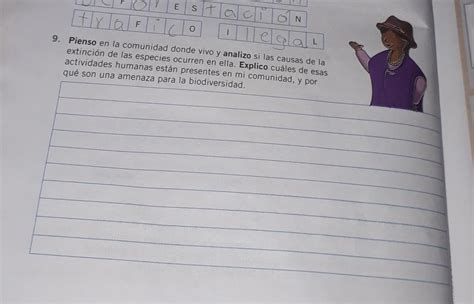 E S t a c i ó N
t r á F i c O I l e g a L
9. Pienso en la comunidad donde vivo y analizo si las causas de la
extinción de las especies ocurren en ella. Explico cuáles de esas
actividades humanas están presentes en mi comunidad, y por
qué son una amenaza para la biodiversidad.